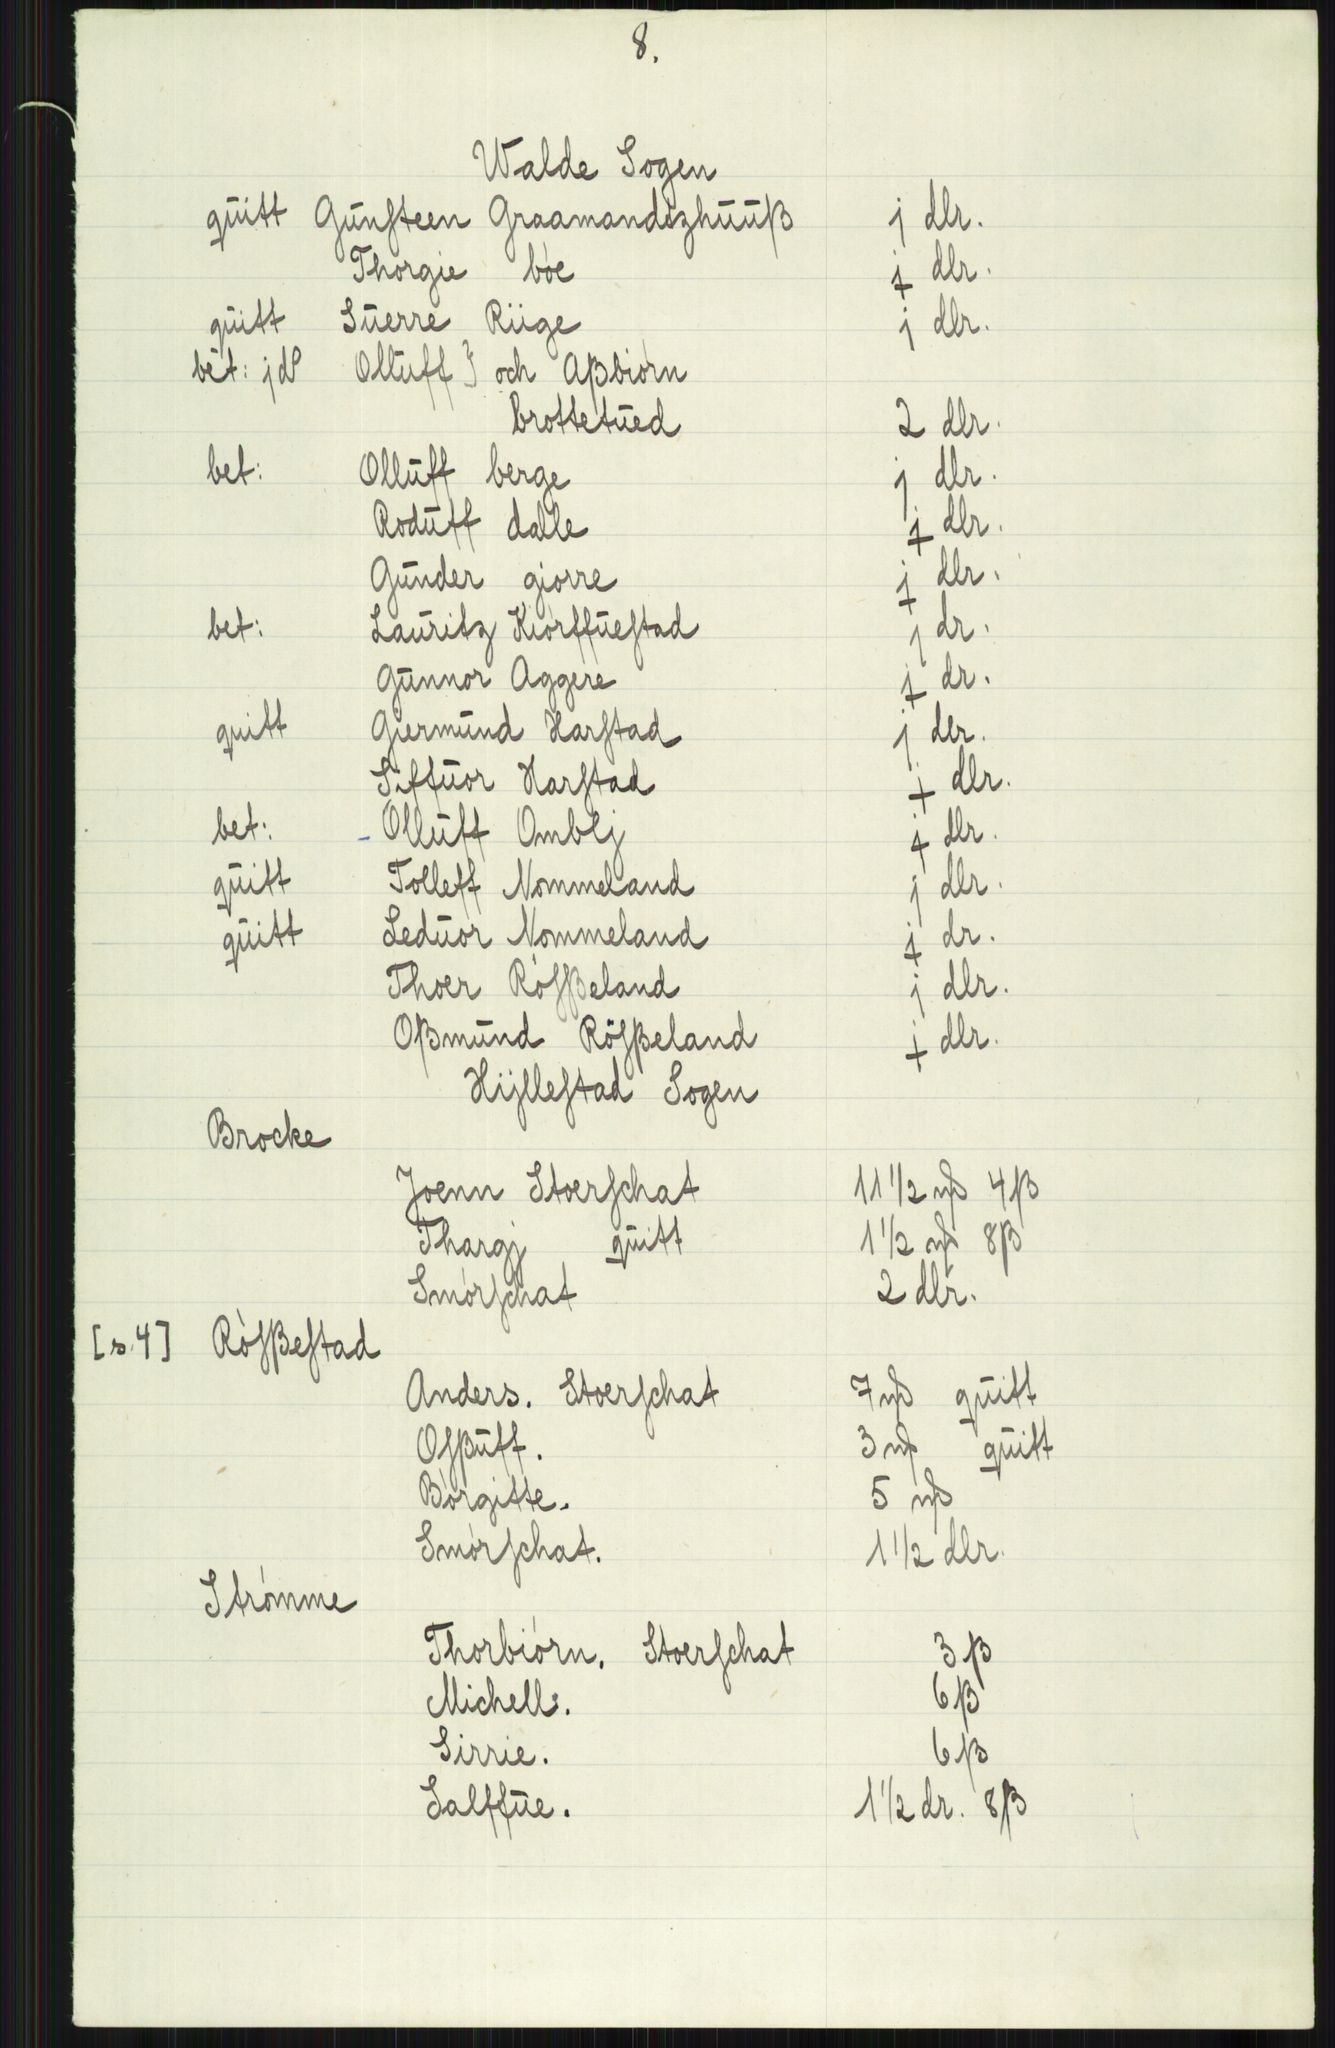 8.
Walde Sogen
qūitt Gūnsteen Graamandtzhūūß j dlr.
Thorgie bóe j dlr.
qūitt Sūerre Riige j dlr.
bet: jd Ollūff } och Aßbiórn
brottetūed 2 dlr.
bet: Ollūff berge j dlr.
Rodūff dalle j dlr.
Gūnder giorre j dlr.
bet: Laūritz Kiórffūestad j dr.
Gūnnor Aggere j dr.
quitt Giermūnd Harstad j dlr.
Siffūor Harstad j dlr.
bet: - Ollūff Omblj j dlr.
qūitt Tolleff Nommeland j dlr.
qūitt Ledūor Nommeland j dr.
Thoer Rósßeland j dlr.
Oßmūnd Rösßeland j dlr.
Hijllestad Sogen
Brocke
Joenn Stoerschat 11 1/2 mß 4 ß
Thargj qūitt 1 1/2 mß 8 ß
Smórschat 2 dlr.
[s.4] Rósßestad
Anders. Stoerschat 7 mß qūitt
Osßūff. 3 mß qūitt
Bórgitte. 5 mß
Smórschat. 1 1/2 dlr.
Strómme
Thorbiórn. Stoerschat 3 ß
Michell. 6 ß
Sirrie. 6 ß
Salffūe. 1 1/2 dr. 8 ß